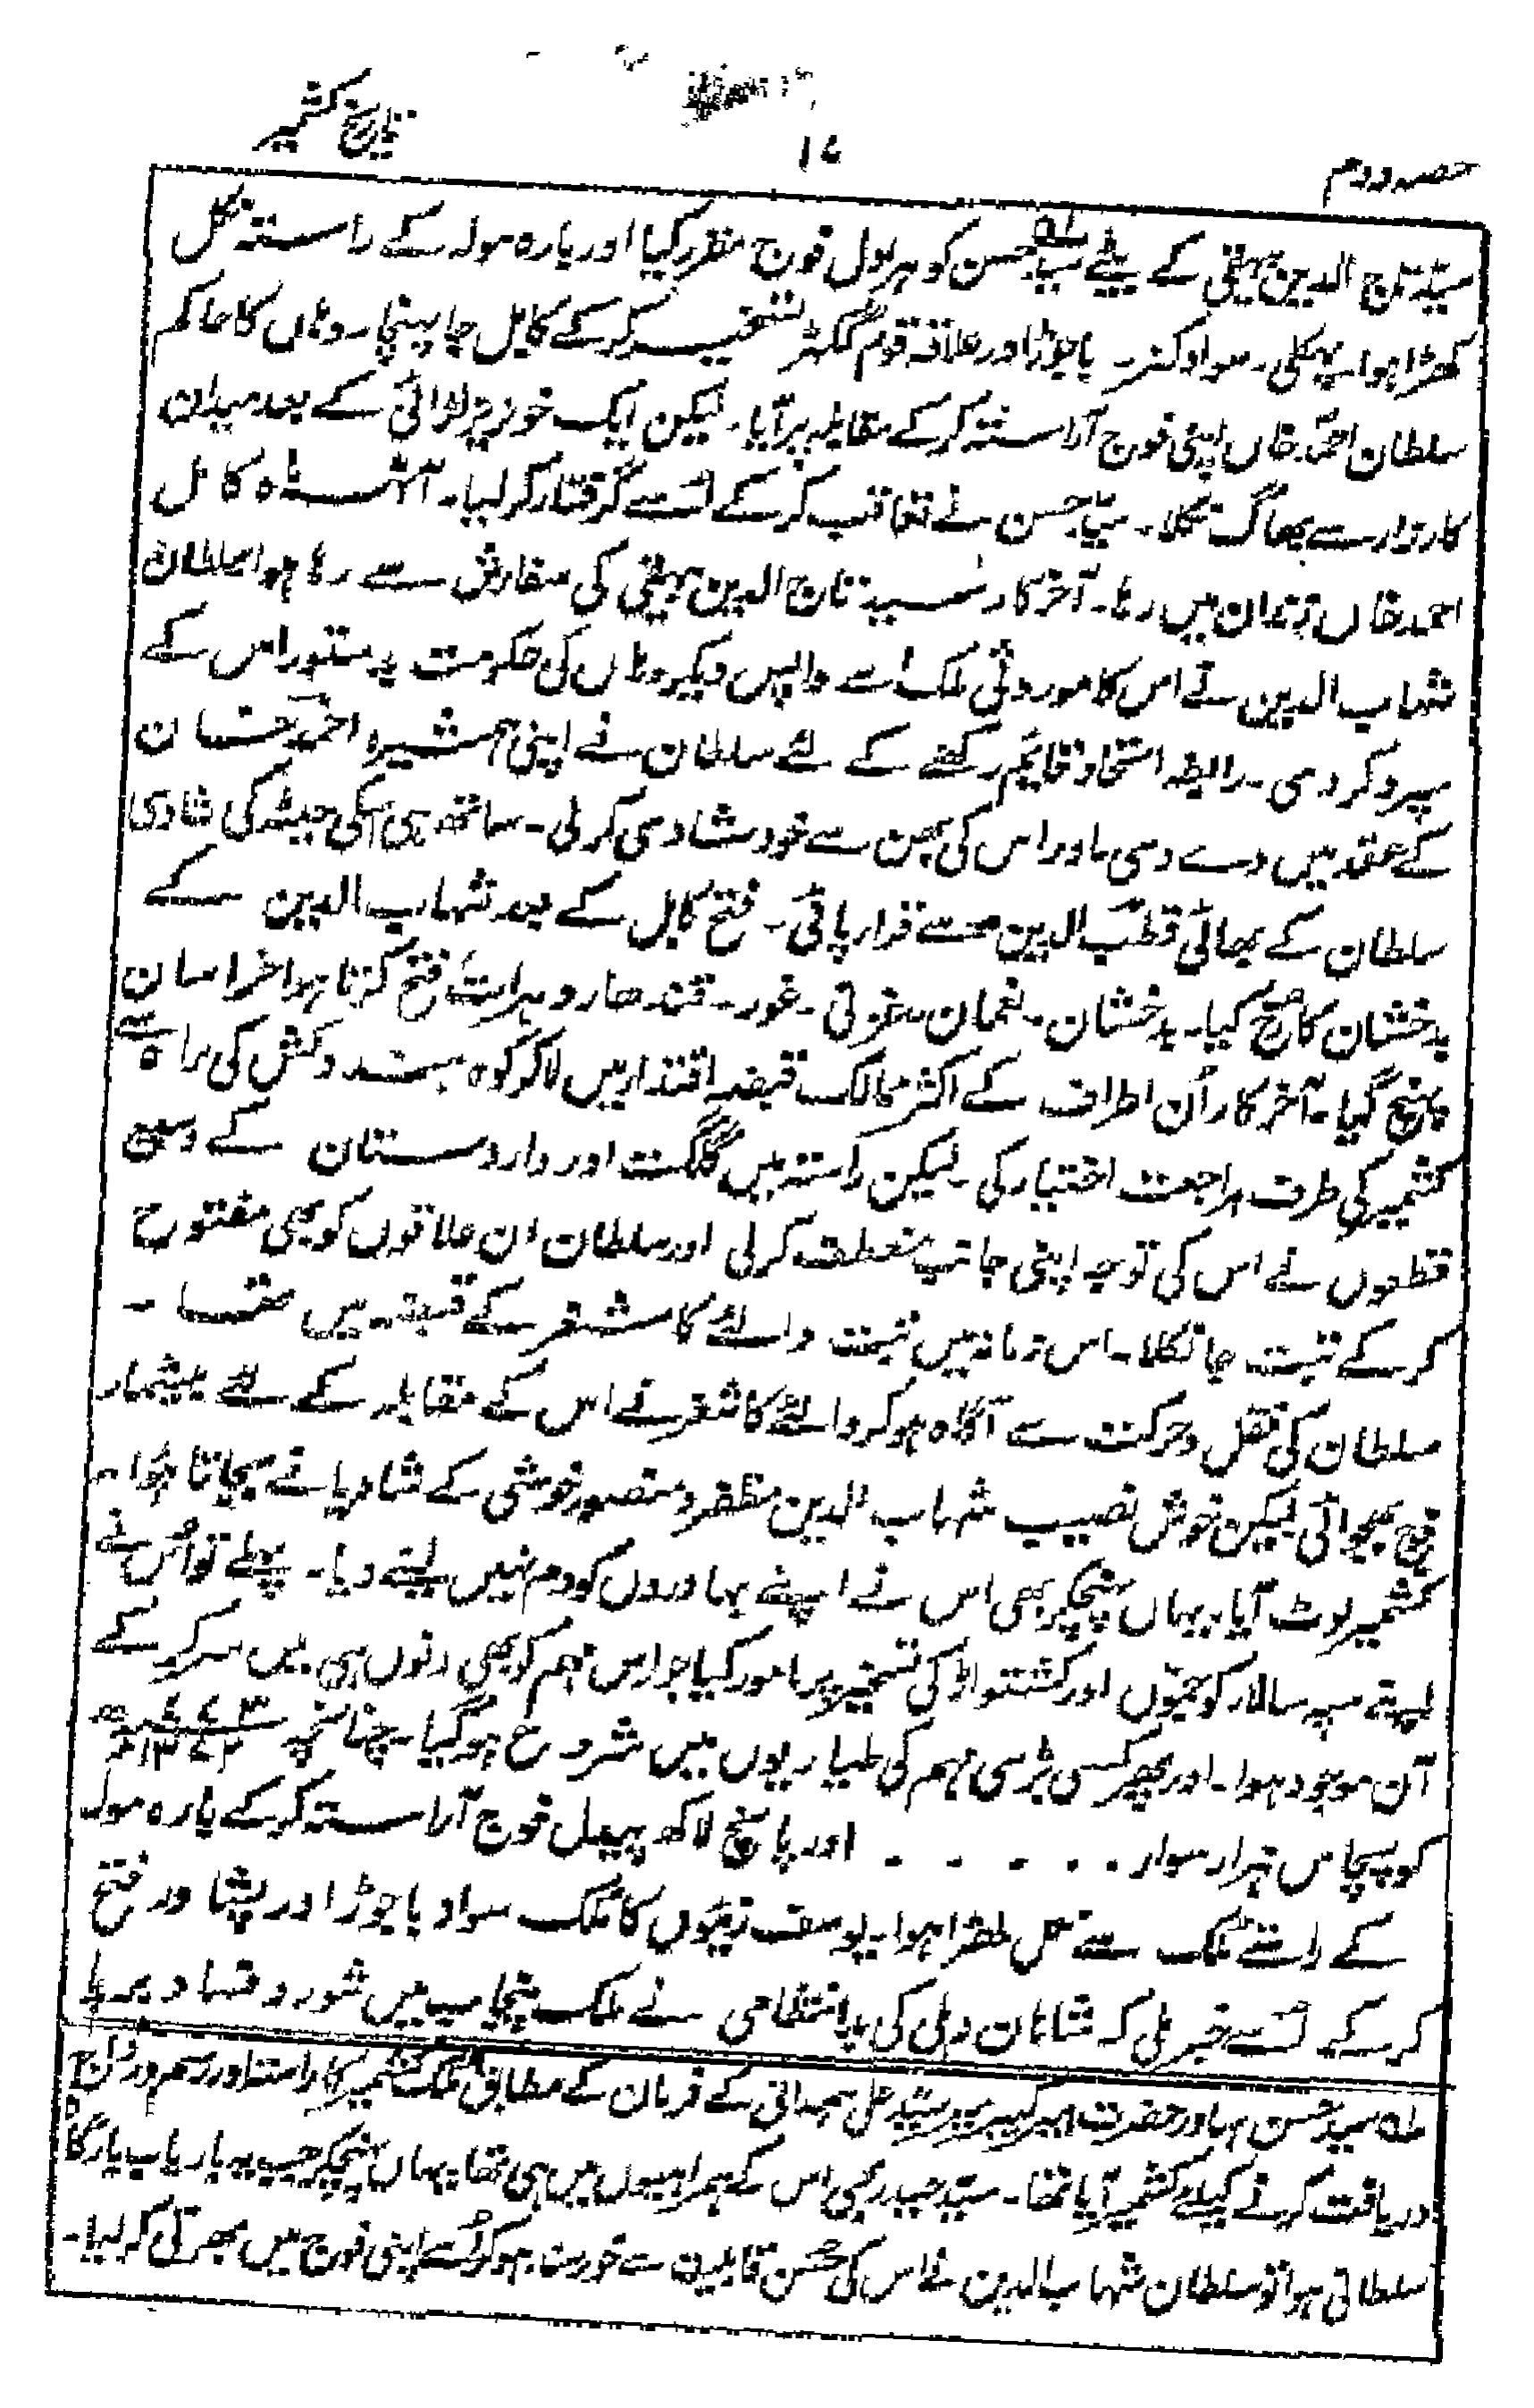 حصہ دوم
۱۷
تاریخ کشمیر
سیّد تاج الدین بیہقی کے بیٹے سید حسن کو ہراول فوج مقرر کیا اور بارہ مولہ کے راستہ نکل
کھڑا ہوا۔ پکہلی۔ سواد کنر۔ باجوڑ اور علاقہ قوم گکھڑ تسخیر کرکے کابل جا پہنچا۔ وہاں کا حاکم
سلطان احمد خاں اپنی فوج آراستہ کرکے مقابلہ پر آیا۔ لیکن ایک خونریز لڑائی کے بعد میدان
کارزار سے بھاگ نکلا۔ سیّد حسن نے تعاقب کرکے اُسے گرفتار کر لیا۔ آٹھ ماہ کامل
احمد خاں زندان میں رہا۔ آخر کار سید تاج الدین بیہقی کی سفارش سے رہا ہوا سلطان
شہاب الدین نے اس کا موروثی ملک اسے واپس دیکر وہاں کی حکومت بدستور اس کے
سپرد کر دی۔ رابطہ اتحاد قایم رکھنے کے لئے سلطان نے اپنی ہمشیرہ احمد خان
کے عقد میں دے دی۔ اور اس کی بہن سے خود شادی کر لی۔ ساتھ ہی اسکی کی شادی
سلطان کے بھائی قطب الدین سے قرار پائی۔ فتح کابل کے بعد شہاب الدین کے
بدخشان کا رخ کیا۔ بدخشان۔ لغمان۔ غزنی۔ غور۔ قندھار و ہرات فتح کرتا ہوا خراسان
پہنچ گیا۔ آخر کار اُن اطراف کے اکثر ممالک قبضہ اقتدار میں لا کر کوہ ہندوکش کی راہ سے
کشمیر کی طرف مراجعت اختیار کی۔ لیکن راستہ میں گلگت اور داردستان کے وسیع
قطعوں نے اس کی توجہ اپنی جانب منعطف کرلی اور سلطان ان علاقوں کو بھی مفتوح
کرکے تبت جا نکلا۔ اس زمانہ میں تبت والئے کاشغر کے قبضہ میں تھا۔
سلطان کی نقل و حرکت سے آگاہ ہو کر والئے کاشغر نے اس کے مقابلہ کے لئے بیشمار
فوج بھجوائی لیکن خوش نصیب شہاب الدین مظفر و منصور خوشی کے شادیانے بجاتا ہوا۔
کشمیر لوٹ آیا۔ یہاں پہنچکر بھی اس نے اپنے بہادروں کو دم نہیں لینے دیا۔ پہلے تو اُس نے
اپنے سپہ سالار کو جموں اور کشتواڑ کی تسخیر پر مامور کیا جو اس مہم کو بھی دنوں ہی میں سر کر کے
آن موجود ہوا۔ اور پھر کسی بڑی مہم کی طیاریوں میں شروع ہو گیا۔ چنانچہ
کو پچاس ہزار سوار . . . . . . اور پانچ لاکھ پیدل فوج آراستہ کرکے بارہ مولہ
کے راستے ملک سے نکل کھڑا ہوا۔ یوسف زئیوں کا ملک سواد باجوڑ اور پشاور فتح
کرکے اُسے خبر ملی کہ شاہان دہلی کی بدانتظامی نے ملک پنجاب میں شور و فساد برپا
لہ سید حسن بہادر حضرت امیر کبیر میر سید علی ہمدانی کے فرمان کے مطابق ملک کشمیر کا راستہ اور رسم و رواج
دریافت کرنے کیلئے کشمیر آیا تھا۔ سیّد حیدر بھی اس کے ہمراہیوں میں ہی تھا۔ یہاں پہنچکر جب یہ باریاب بارگاہ
سلطانی ہوا تو سلطان شہاب الدین نے اس کی حسن قابلیت سے خورسند ہو کر اُسے اپنی فوج میں بھرتی کر لیا۔